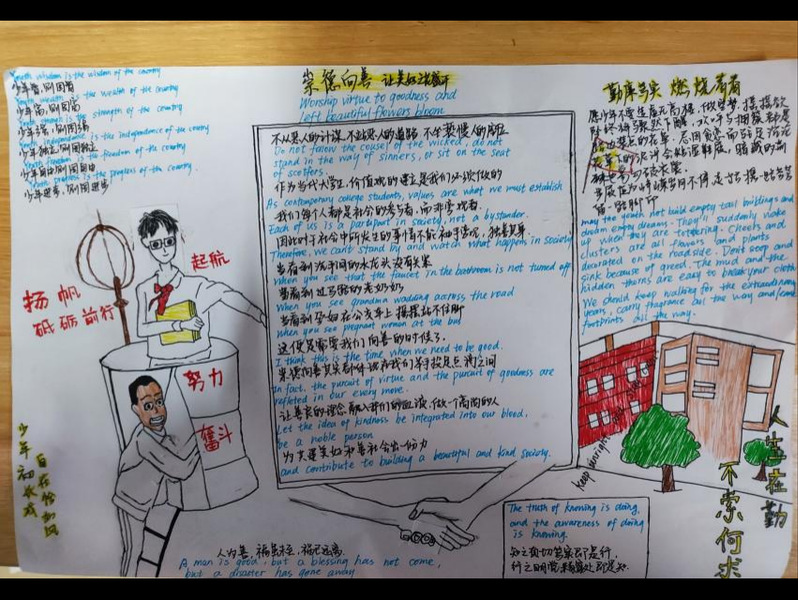 Youth wisdom is the wisdom of the country
少年智，则国智
Youth wealth is the wealth of the country
少年富，则国富
Youth strength is the strength of the country
少年强，则国强
Youth independence is the independence of the country
少年独立，则国独立
Youth freedom is the freedom of the country
少年自由，则国自由
Youth progress is the progress of the country.
少年进步，则国进步
崇德向善 让美好
Worship virtue to goodness and
left beautiful flowers bloom
不从恶人的计谋，不站恶人的道路，不坐亵慢人的座位
Do not follow the counsel of the wicked, do not
stand in the way of sinners, or sit on the seat
of scoffers
作为当代大学生，价值观的建立是我们必须做的
As contemporary college students, values are what we must establish
我们每个人都是社会的参与者，而非旁观者.
Each of us is a participant in society, not a bystander.
因此对于社会中所发生的事情不能袖手旁观，独善其身
Therefore, we can't stand by and watch what happens in society
当看到洗手间的水龙头没有关
When you see that the faucet in the bathroom is not turned off
当看到过马路的老奶奶
When you see grandma wadding across the road
当看到孕妇在公交车上摇摇站不住脚
when you see pregnant women at the bus
这便是需要我们向善的时候了.
I think this is the time when we need to be good.
崇德向善其实都体现在我们举手投足点滴之间
In fact, the pursuit of virtue and the pursuit of goodness are
reflected in our every move.
让善良的理念，融入我们的血液，做一个高尚的人
Let the idea of kindness be integrated into our blood,
be a noble person
为共建美好和善社会出一份力
and contribute to building a beautiful and kind society.
勤 实 燃烧
愿少年不要建座高楼，做空梦，摇摇欲
may the youth not build empty tall buildings and
dream empty dreams. They'll suddenly wake
up when they are tetering. Cheers and
clusters are all flowers and plants
on the roadside. Don't soop and
sink because of greed. The mud and the
hidden thorns are easy to break your cloth
We should keep walking for the extraordinary
years, carry fragrance all the way and leave
footprints all the way.
扬帆
起航
砥砺前行
努力
奋斗
少年初长成
自在恰如风
人生在勤
不索何求
人为善，福虽未至，祸已远离.
A man is good, but a blessing has not come,
but a disaster has gone away.
The truth of knowing is doing,
and the awareness of doing
is knowing.
知之真切笃实即是行，
行之明觉精察处即是知.